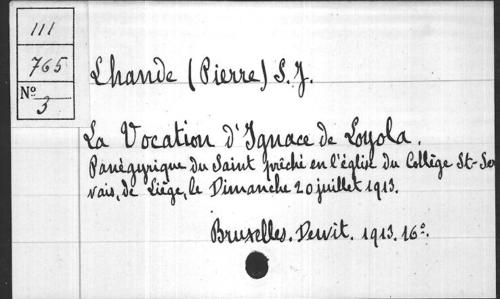 111
765
Nº
3
Lhande (Pierre) S. J.
La Vocation d'Ignace de Loyola.
Panégyrique du Saint prêché en l'église du Collège St-Ser
vais, de Liège, le Dimanche 20 juillet 1913.
Bruxelles. Dewit. 1913. 16º.